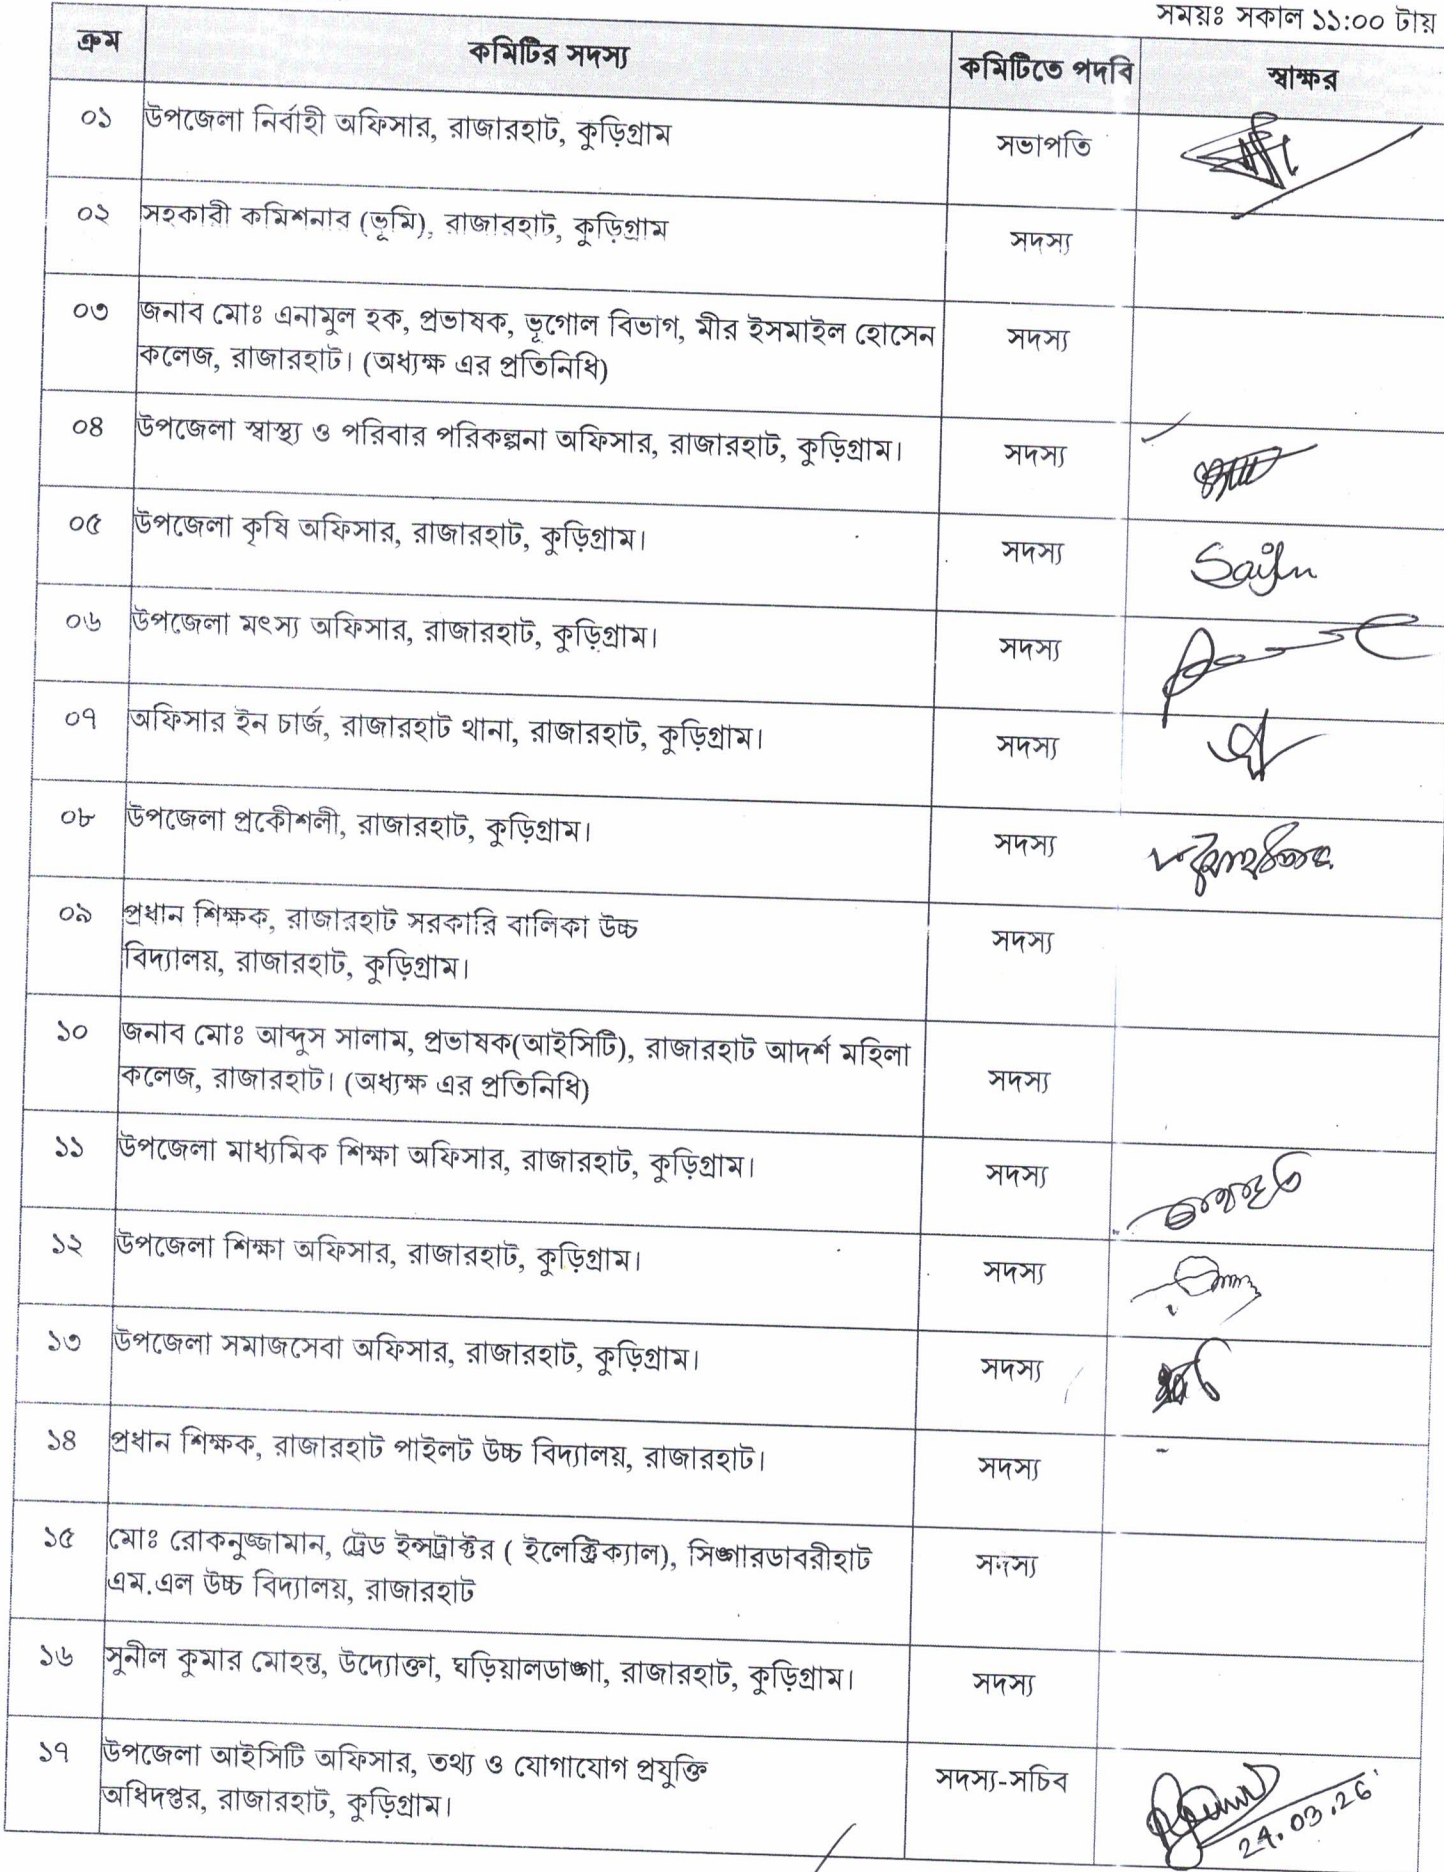 সময়ঃ সকাল ১১:০০ টায়
ক্রম কমিটির সদস্য কমিটিতে পদবি স্বাক্ষর
০১ উপজেলা নির্বাহী অফিসার, রাজারহাট, কুড়িগ্রাম সভাপতি
০২ সহকারী কমিশনার (ভূমি), রাজারহাট, কুড়িগ্রাম সদস্য
০৩ জনাব মোঃ এনামুল হক, প্রভাষক, ভূগোল বিভাগ, মীর ইসমাইল হোসেন সদস্য
কলেজ, রাজারহাট। (অধ্যক্ষ এর প্রতিনিধি)
০৪ উপজেলা স্বাস্থ্য ও পরিবার পরিকল্পনা অফিসার, রাজারহাট, কুড়িগ্রাম। সদস্য
০৫ উপজেলা কৃষি অফিসার, রাজারহাট, কুড়িগ্রাম। সদস্য
০৬ উপজেলা মৎস্য অফিসার, রাজারহাট, কুড়িগ্রাম। সদস্য
০৭ অফিসার ইন চার্জ, রাজারহাট থানা, রাজারহাট, কুড়িগ্রাম। সদস্য
০৮ উপজেলা প্রকৌশলী, রাজারহাট, কুড়িগ্রাম। সদস্য
০৯ প্রধান শিক্ষক, রাজারহাট সরকারি বালিকা উচ্চ সদস্য
বিদ্যালয়, রাজারহাট, কুড়িগ্রাম।
১০ জনাব মোঃ আব্দুস সালাম, প্রভাষক(আইসিটি), রাজারহাট আদর্শ মহিলা
কলেজ, রাজারহাট। (অধ্যক্ষ এর প্রতিনিধি) সদস্য
১১ উপজেলা মাধ্যমিক শিক্ষা অফিসার, রাজারহাট, কুড়িগ্রাম। সদস্য
১২ উপজেলা শিক্ষা অফিসার, রাজারহাট, কুড়িগ্রাম। সদস্য
১৩ উপজেলা সমাজসেবা অফিসার, রাজারহাট, কুড়িগ্রাম। সদস্য
১৪ প্রধান শিক্ষক, রাজারহাট পাইলট উচ্চ বিদ্যালয়, রাজারহাট। সদস্য
১৫ মোঃ রোকনুজ্জামান, ট্রেড ইন্সট্রাক্টর ( ইলেক্ট্রিক্যাল), সিঙ্গারডাবরীহাট সদস্য
এম.এল উচ্চ বিদ্যালয়, রাজারহাট
১৬ সুনীল কুমার মোহন্ত, উদ্যোক্তা, ঘড়িয়ালডাঙ্গা, রাজারহাট, কুড়িগ্রাম। সদস্য
১৭ উপজেলা আইসিটি অফিসার, তথ্য ও যোগাযোগ প্রযুক্তি সদস্য-সচিব
অধিদপ্তর, রাজারহাট, কুড়িগ্রাম।
24.03.26